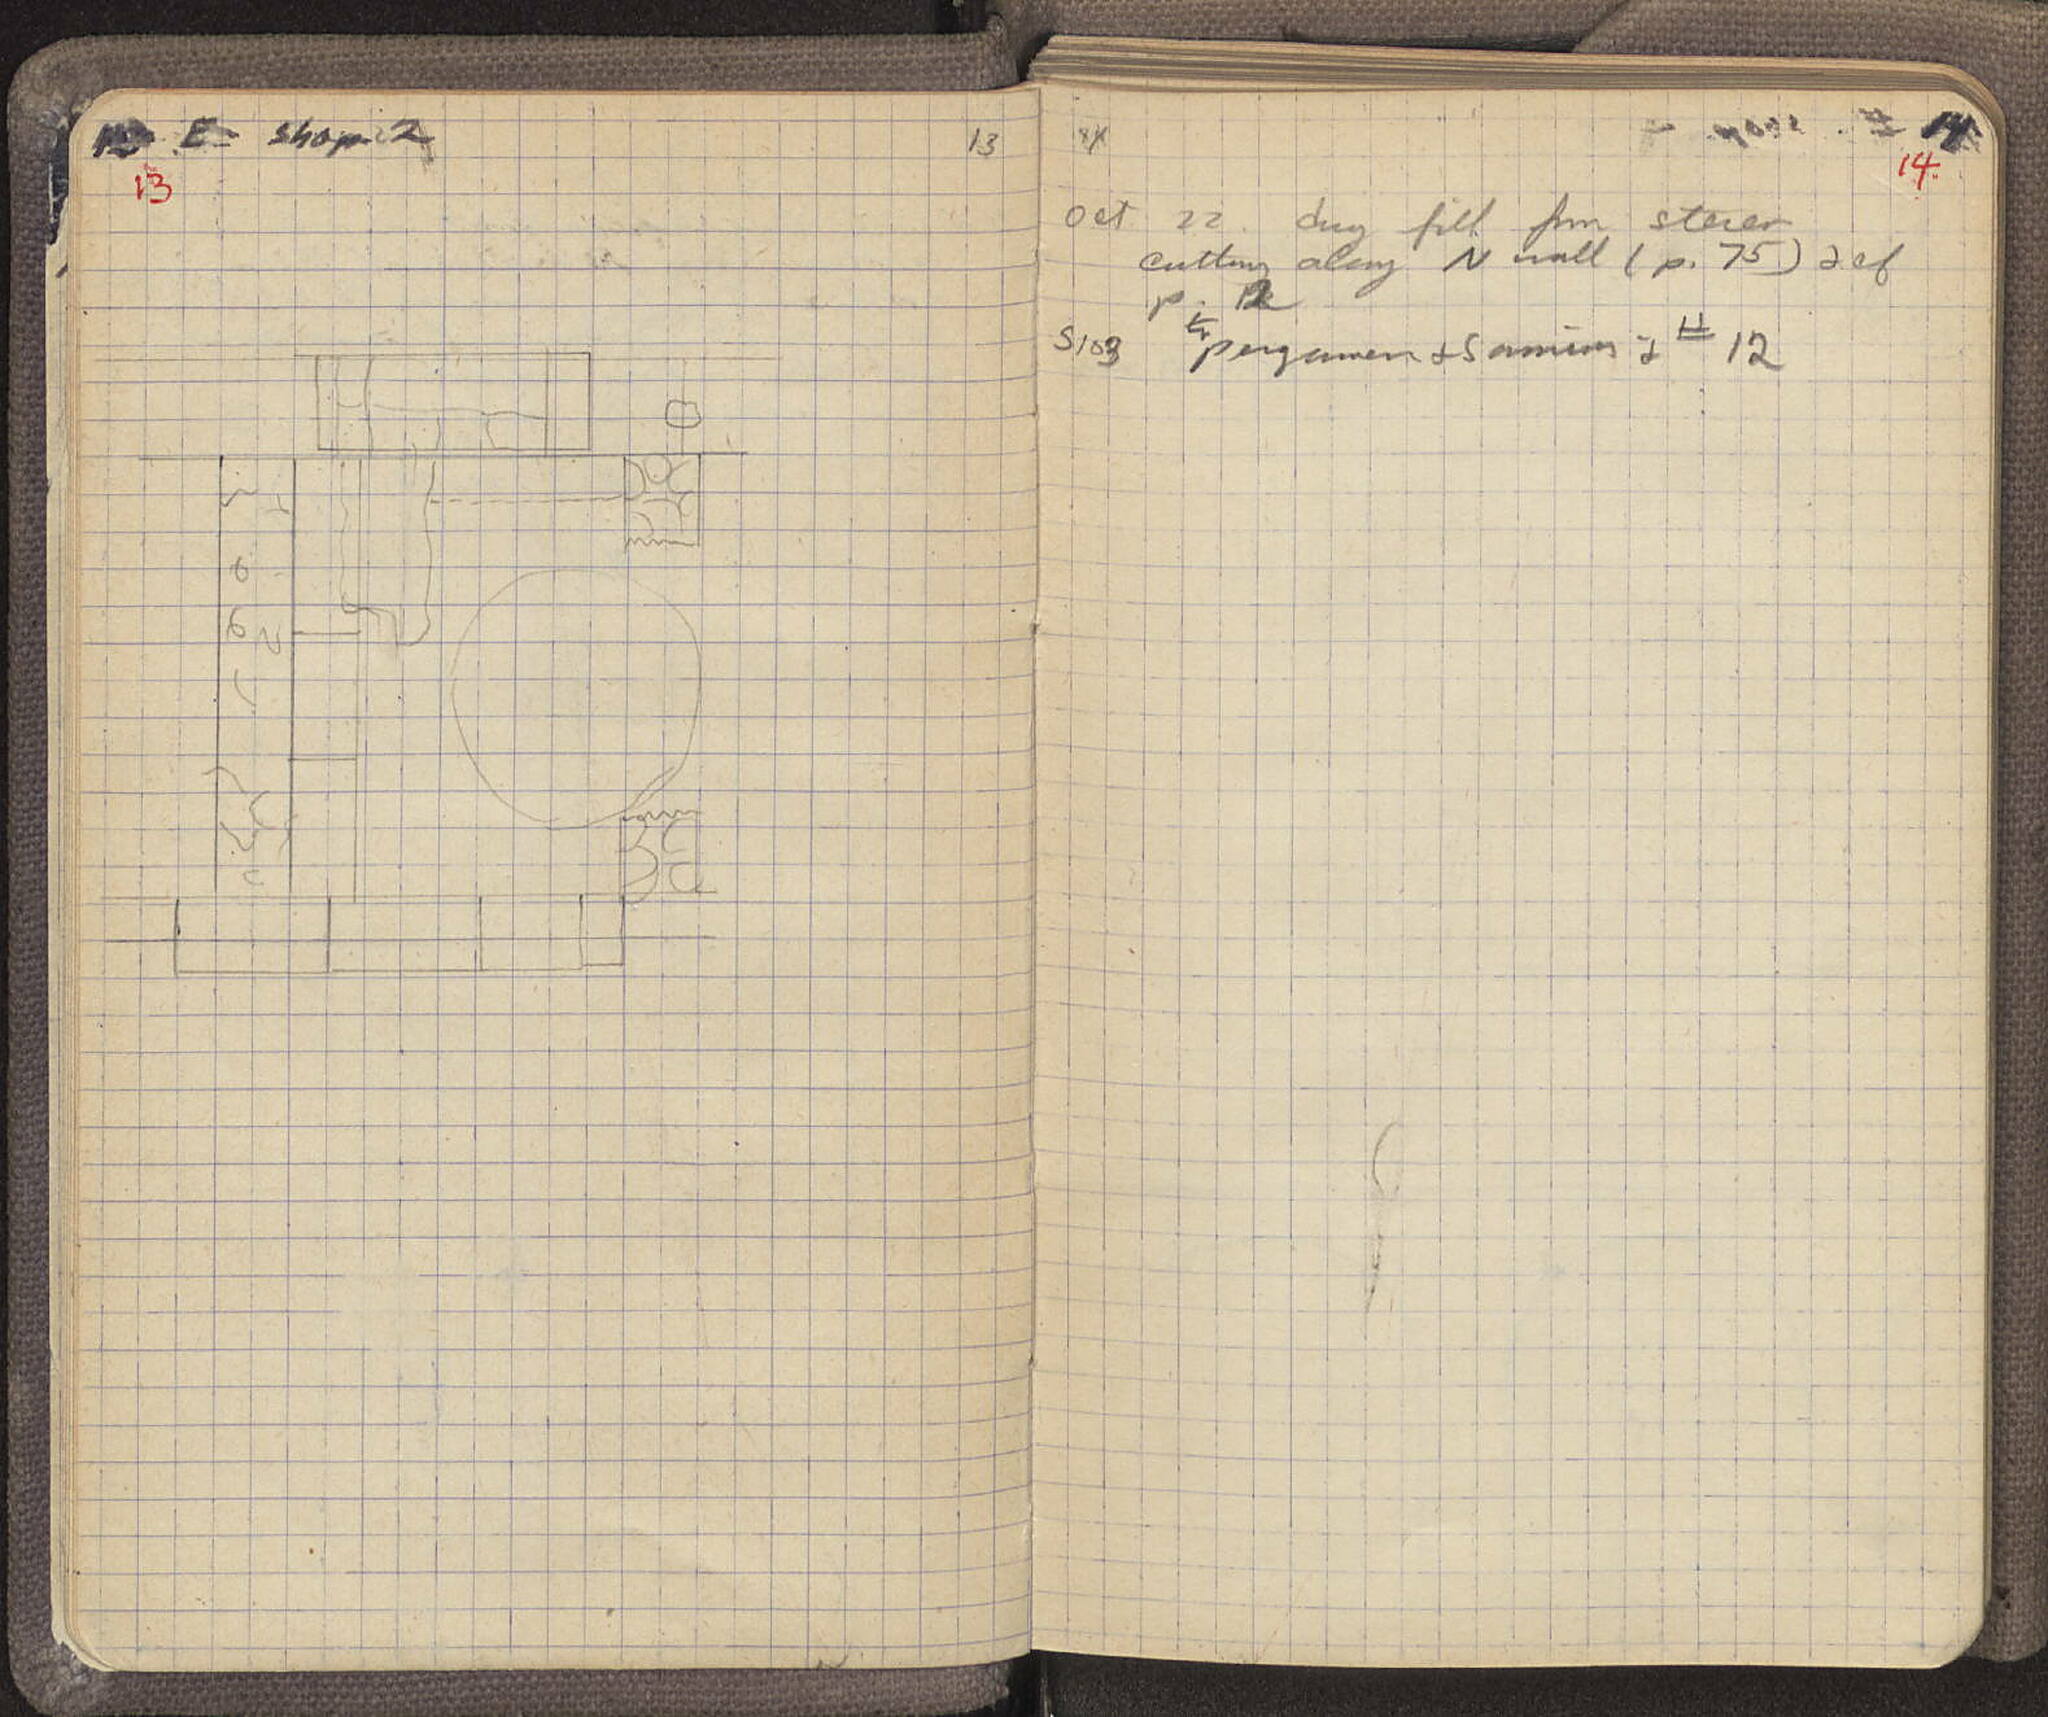 E shop 2
13
13
14
14
Oct 22. dug fill from sterer
cutting along N wall (p. 75) & cf
p. 12
S103 pergamen & Samian & # 12